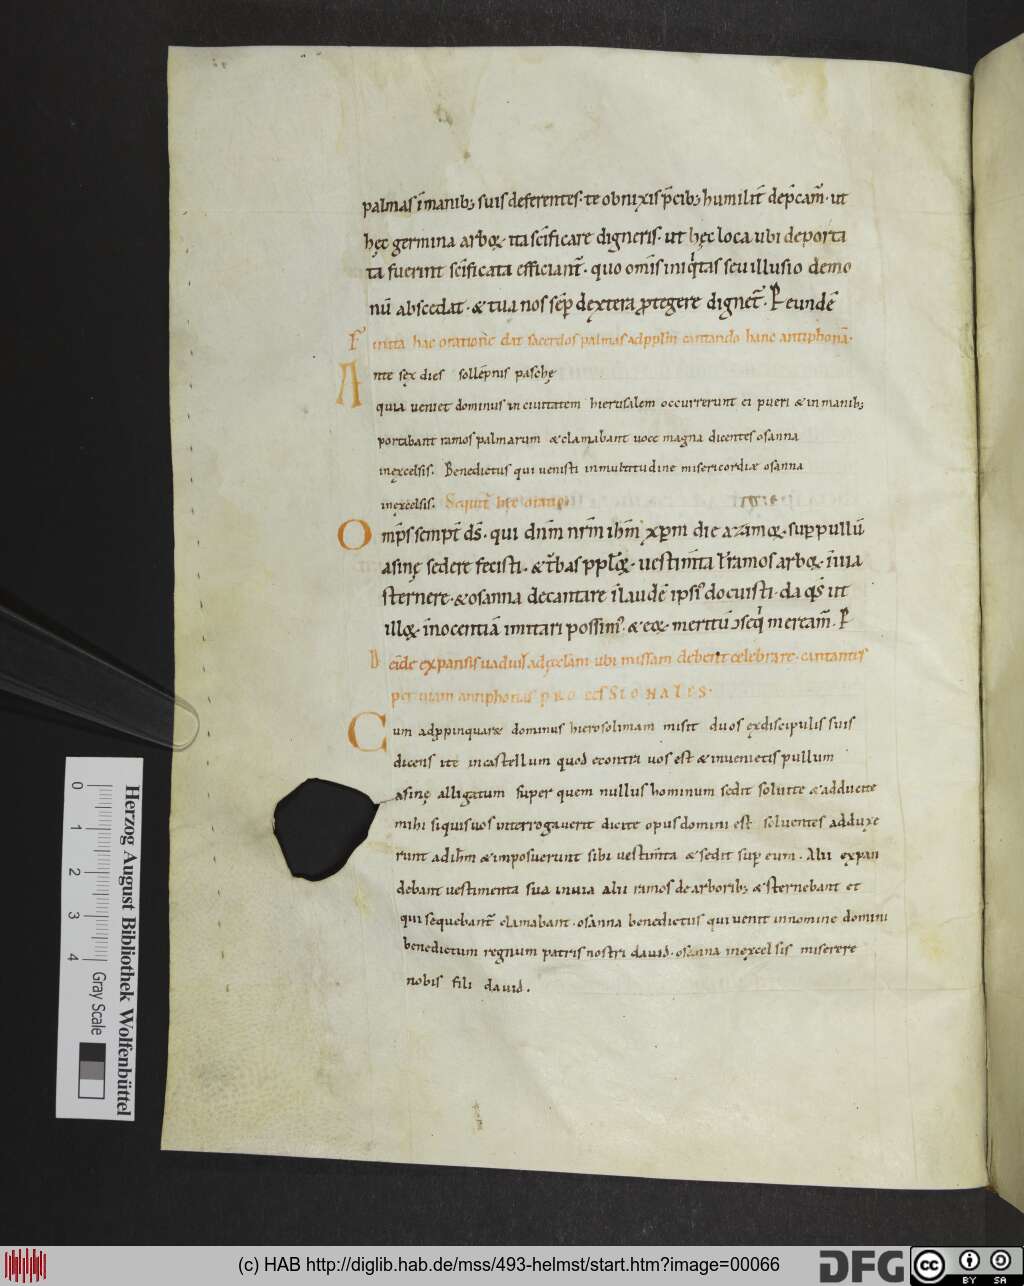 palmas ī manib; suis deferentes · te obnixis p̄cib; humilit̄ dep̄cam̄ · ut
hęc germina arboꝝ · ita sc̄ificare digneris · ut hęc loca ubi deporta
ta fuerint sc̄ificata efficiant̄ · quo om̄is iniq̇tas seu illusio demo
nū abscedat · & tua nos sēp dextera ꝓtegere dignet̄ · P eundē
Finita hac oratione dat sacerdos palmas ad ppl̄m cantando hanc antiphonā ·
Ante sex dies sollēpnis paschę
quia ueniet dominus in ciuitatem hierusalem occurrerunt ei pueri & in manib;
portabant ramos palmarum & clamabant uoce magna dicentes osanna
in excelsis. Benedictus qui uenisti in multitudine misericordiæ osanna
in excelsis. Sequit̄ hęc oratio
Omp̄s sempit̄ ds̄ · qui dn̄m nr̄m ihm̄ xp̄m die azimoꝝ · sup pullū
asinę sedere fecisti · & t̄bas pploꝝ · uestim̄ta ł ramos arboꝝ · ī uia
sternere · & osanna decantare ī laudē ipsiꝰ docuisti · da qs̄ ut
illoꝝ · īnocentiā imitari possimꝰ · & eoꝝ · meritū ↄseq̇ meream̄ · P
Deīde expansis uadūt ad ęcclam̄ · ubi missam debent celebrare · cantantes
per uiam antiphonas PROCESSIONALES ·
Cum adppinquaræ dominus hierosolimam misit duos ex discipulis suis
dicens ite in castellum quod econtra uos est & inuenietis pullum
asinę alligatum super quem nullus hominum sedit soluite & adducite
mihi si quis uos interrogauerit dicite opus domini est soluentes adduxe
runt ad ihm̄ & imposuerunt sibi uestim̄ta & sedit sup eum · Alii expan
debant uestimenta sua in uia alii ramos de arborib; & sternebant et
qui sequebant̄ clamabant · osanna benedictus qui uenit in nomine domini
benedictum regnum patris nostri dauid · osanna in excelsis miserere
nobis fili dauid .
0 1 2 3 4
Gray Scale
Herzog August Bibliothek Wolfenbüttel
(c) HAB http://diglib.hab.de/mss/493-helmst/start.htm?image=00066
DFG
cc BY SA